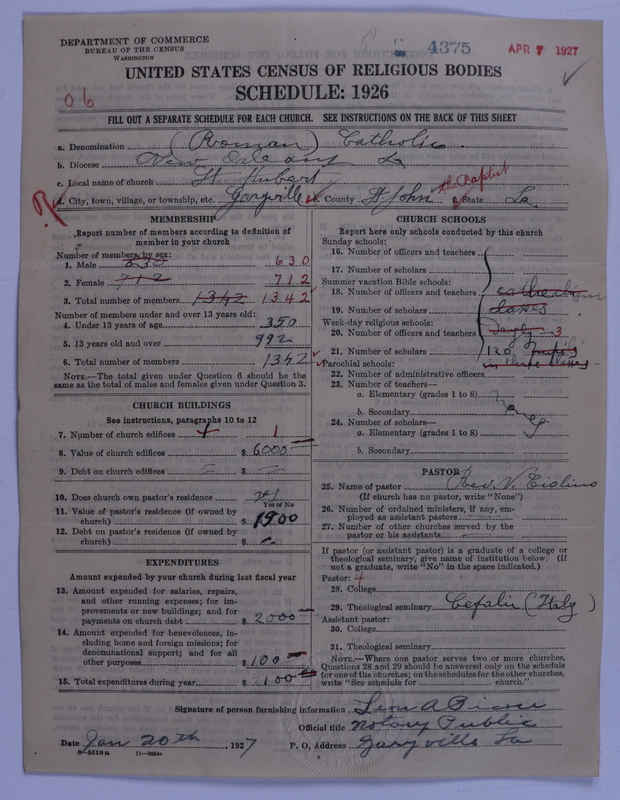 DEPARTMENT OF COMMERCE
BUREAU OF THE CENSUS
WASHINGTON
4375
APR 7 1927
UNITED STATES CENSUS OF RELIGIOUS BODIES
SCHEDULE: 1926
06
FILL OUT A SEPARATE SCHEDULE FOR EACH CHURCH. SEE INSTRUCTIONS ON THE BACK OF THIS SHEET
a. Denomination (Roman) Catholic
b. Diocese New Orleans La
c. Local name of church St Hubert
the Baptist
d. City, town, village, or township, etc. Garyville e. County St John f. State La
R
MEMBERSHIP
Report number of members according to definition of member in your church
Number of members, by sex:
1. Male 630 630
2. Female 712 712
3. Total number of members 1342 1342
Number of members under and over 13 years old:
4. Under 13 years of age 350
5. 13 years old and over 992
6. Total number of members 1342
NOTE.—The total given under Question 6 should be the same as the total of males and females given under Question 3.
CHURCH BUILDINGS
See instructions, paragraphs 10 to 12
7. Number of church edifices 1
8. Value of church edifices $ 6000
9. Debt on church edifices $
10. Does church own pastor's residence yes
Yes or No
11. Value of pastor's residence (if owned by church) $ 1900
12. Debt on pastor's residence (if owned by church) $
EXPENDITURES
Amount expended by your church during last fiscal year
13. Amount expended for salaries, repairs, and other running expenses; for improvements or new buildings; and for payments on church debt $ 2000
14. Amount expended for benevolences, including home and foreign missions; for denominational support; and for all other purposes $ 100
15. Total expenditures during year $ 2100
CHURCH SCHOOLS
Report here only schools conducted by this church
Sunday schools:
16. Number of officers and teachers
17. Number of scholars
Summer vacation Bible schools:
18. Number of officers and teachers
19. Number of scholars classes
Week-day religious schools:
20. Number of officers and teachers 3
21. Number of scholars 120 pupils
in three classes
Parochial schools:
22. Number of administrative officers
23. Number of teachers—
a. Elementary (grades 1 to 8)
b. Secondary
24. Number of scholars—
a. Elementary (grades 1 to 8)
b. Secondary
None
PASTOR
25. Name of pastor Rev. V. Ciolino
(If church has no pastor, write "None")
26. Number of ordained ministers, if any, employed as assistant pastors
27. Number of other churches served by the pastor or his assistants
If pastor (or assistant pastor) is a graduate of a college or theological seminary, give name of institution below. (If not a graduate, write "No" in the space indicated.)
Pastor: 4
28. College
29. Theological seminary Cefalu (Italy)
Assistant pastor:
30. College
31. Theological seminary
NOTE.—Where one pastor serves two or more churches, Questions 28 and 29 should be answered only on the schedule for one of the churches; on the schedules for the other churches, write "See schedule for church."
Signature of person furnishing information
Official title Notary Public
Date Jan 20th, 1927 P. O. Address Garyville La
8-5518a 11-9064c